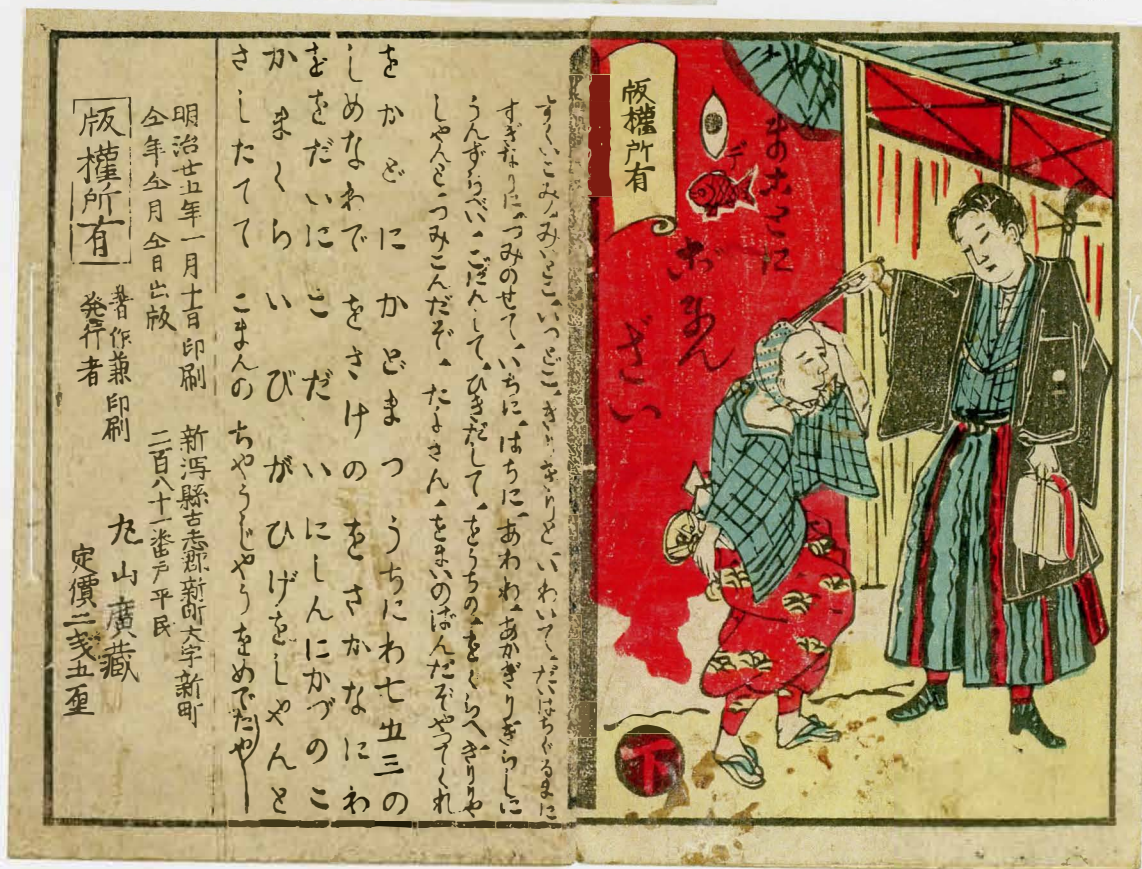 版權所有
まことに
デ
おまん
ざい
下
すくいこみ、みいとこ、いつとこ、きりきりといわいて、だいはちぐるまに
すぎなりに、つみのせて、いちに、はちに、あわわ、あかぎりきらしに
うんずらべい、ごだんして、ひきだして、をうちの、をくらへ、きりりや
しやんと、つみこんだぞ、たよさん、をまいのばんだぞやつてくれ
をかどにかどまつうちにわ七五三の
しめなわでをさけのをさかなにわ
をゝだいにこだいにしんにかづのこ
かまくらいびがひげをしやんと
さしたてゝこまんのちやうじやうをめでたや
明治廿五年一月十日印刷
仝年仝月仝日出版
新潟縣古志郡新町大字新町
二百八十一番戸平民
著作兼印刷
発行者
丸山廣藏
版權所有
定價二戔五厘